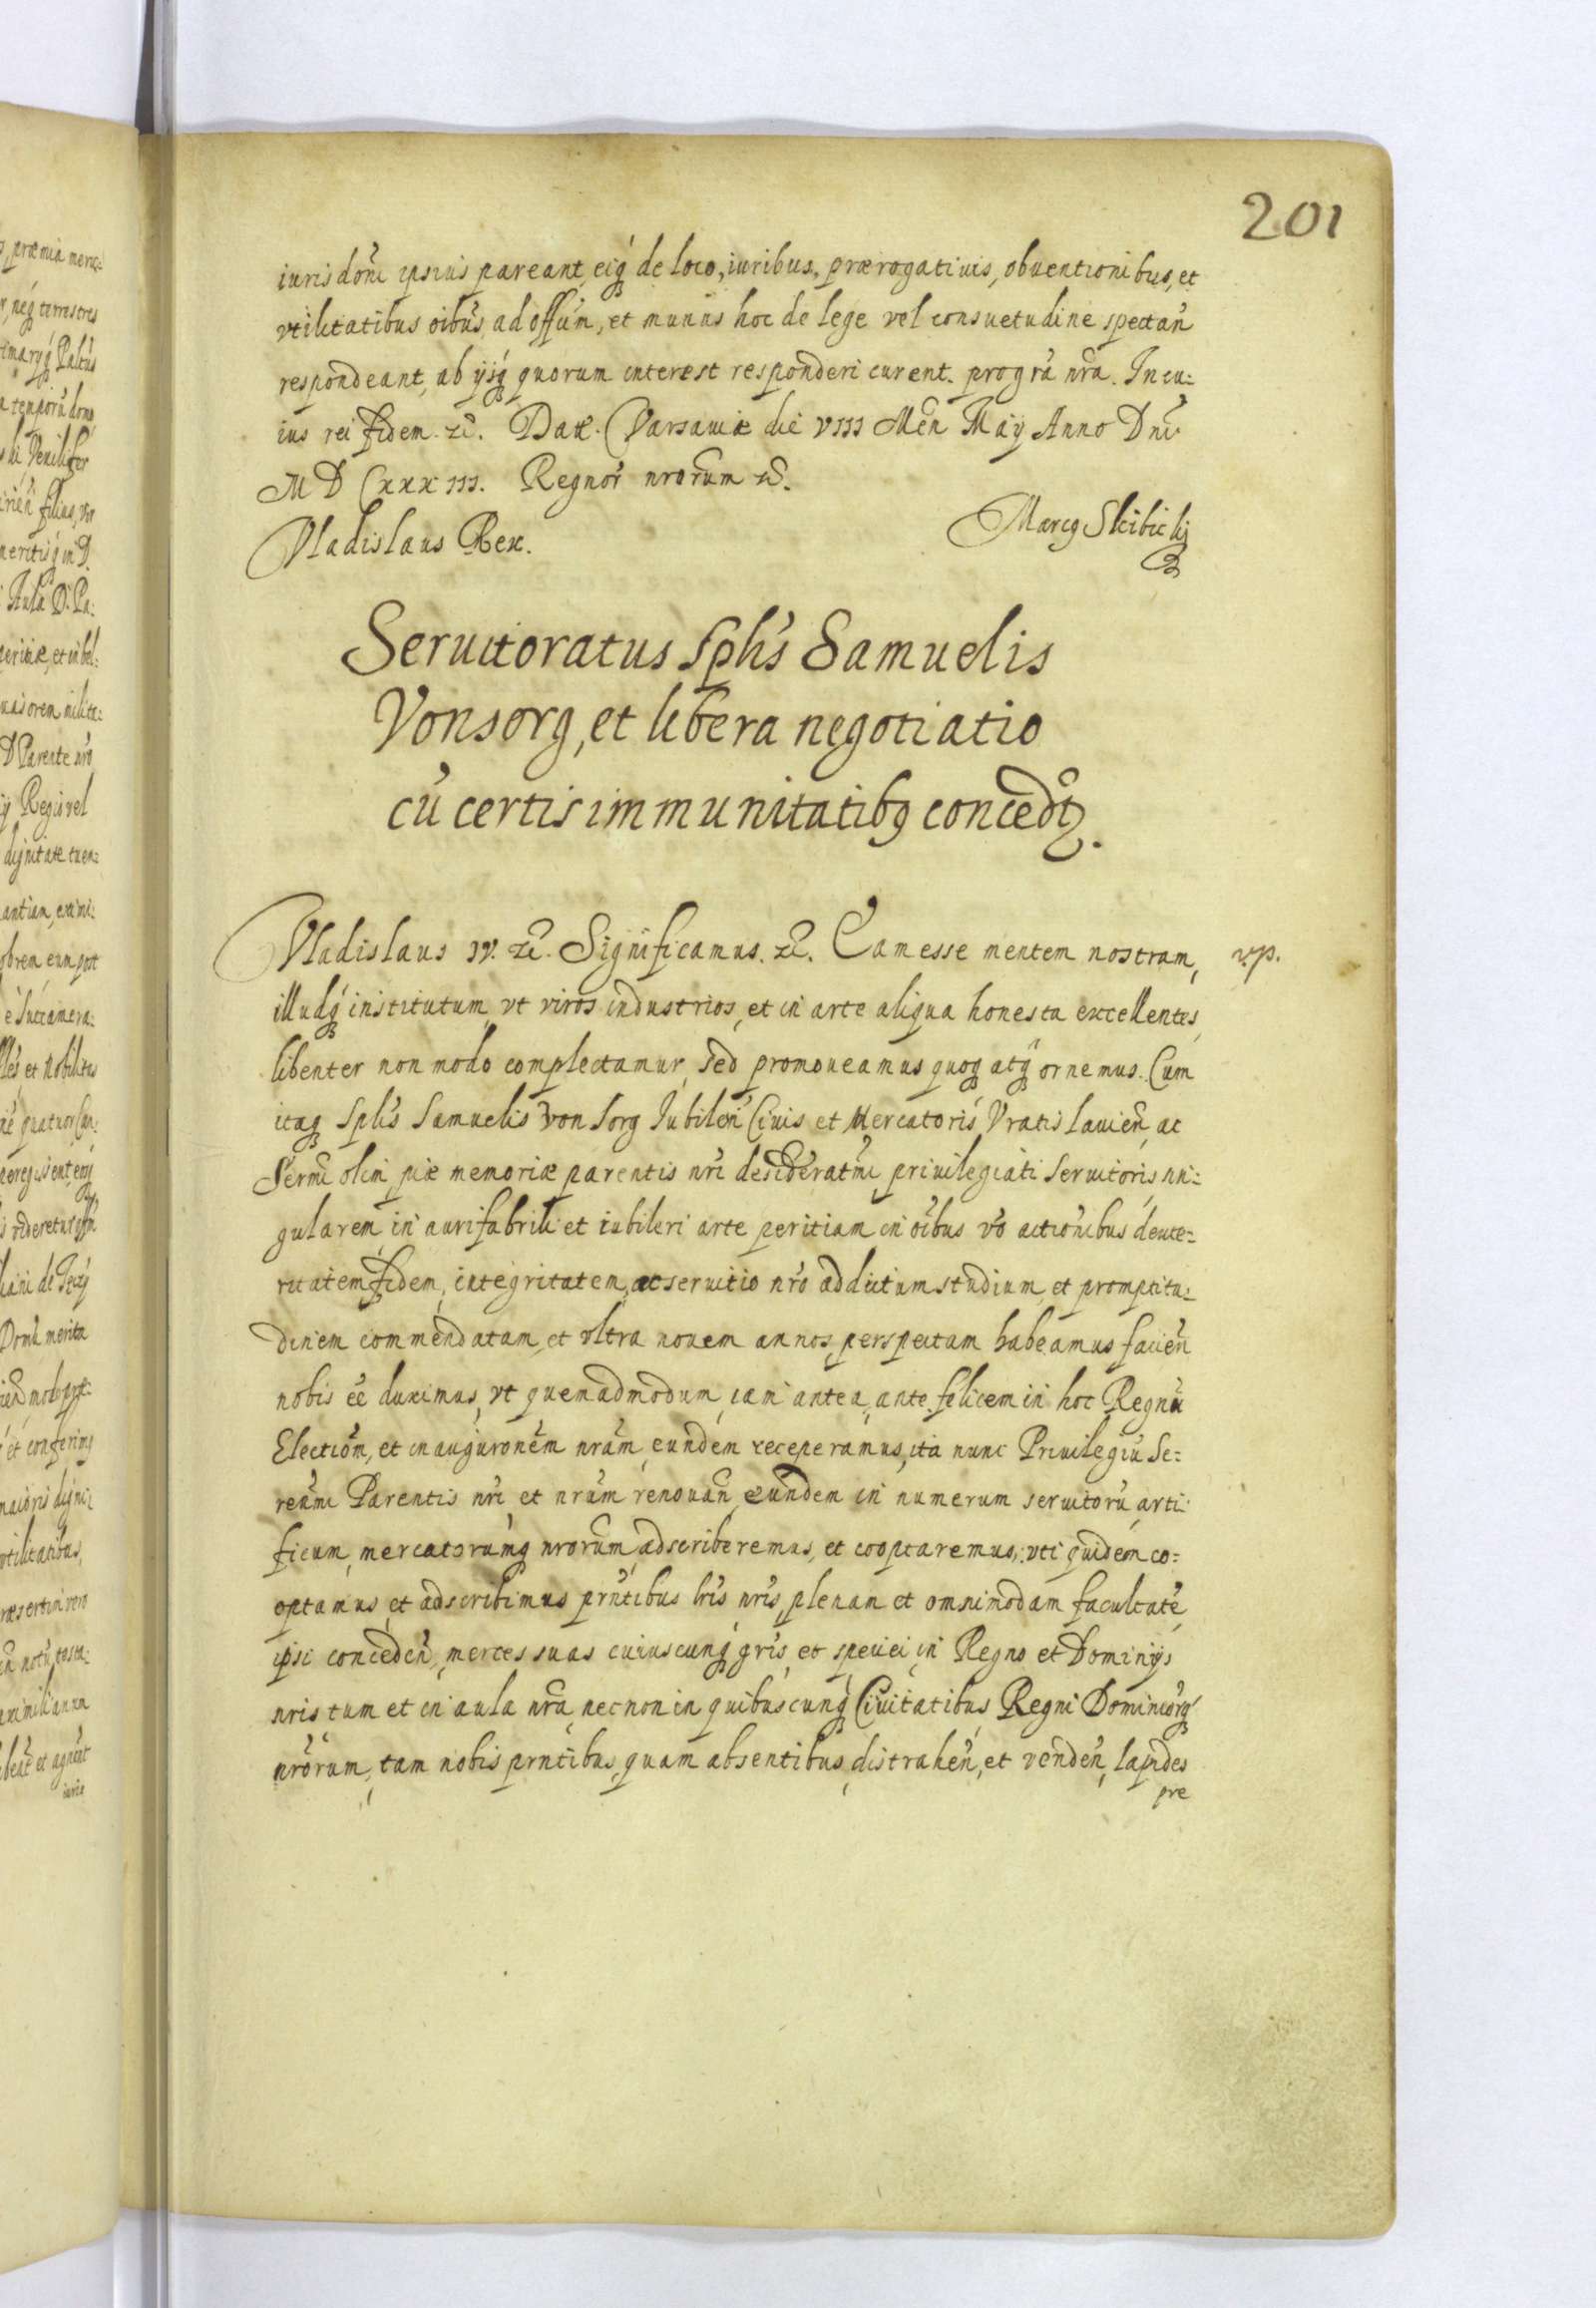 201
iurisdoñi ipsius pareant, eiq́ de loco, iuribus, prærogatiuis, obuentionibus, et
vtilitatibus oibũs, ad offũm, et munus hoc de lege vel consuetudine spectañ
respondeant, ab ysq́ quorum interest responderi curent. pro grã nrã. In cu:
ius rei fidem. ꝛc̃. Datæ. Varsauiæ die VIII Meñ Maÿ Anno Dnĩ
MDCXXXIII. Regnor̃ nrorũm ꝛc̃.
Vladislaus Rex.
Marcꝯ Skibicki
Seruitoratus Splis̃ Samuelis
Vonsorg, et libera negotiatio
cũ certis immunitatibꝯ concedĩt.
Vladislaus IV. ꝛc̃. Significamus. ꝛc̃. Eam esse mentem nostram,
v.p.
illudq́ institutum, vt viros industrios, et in arte aliqua honesta excellentes,
libenter non modo complectamur, sed promoueamus quoq́ atq́ ornemus. Cum
itaq́ Splis̃ Samuelis Von Sorg Iubileri Ciuis et Mercatoris Vratislauień, ac
Sermĩ olim piæ memoriæ parentis nrĩ desideratm̃i priuilegiati seruitoris sin:
gularem in aurifabrili et iubileri arte peritiam in oibũs vo ̃actionibus dexte:
ritatem fidem, integritatem, ac seruitio nrõ addictum studium, et promptitu:
dinem commendatam, et vltra nouem annos perspectam habeamus facień
nobis eẽ duximus, vt quemadmodum iam antea, ante felicem in hoc Regnũ
Electiõm, et inauguronẽm nrãm, eundem receperamus, ita nunc Priuilegiũ Se:
renm̃i Parentis nrĩ et nrũm renouań eundem in numerum seruitorũ, arti:
ficum, mercatorumq́ nrorũm adscriberemus, et cooptaremus, vti quidem co:
optamus et adscribimus prñtibus lris̃ nris̃, plenam et omnimodam facultatẽ
ipsi conceden̄, merces suas cuiuscunq́ gris̃, et speciei in Regno et Dominÿs
nris̃ tum et in aula nrã nec non in quibuscunq́ Ciuitatibus Regni Dominiorq́
nrorũm, tam nobis prñtibus, quam absentibus distraheń, et vendeń, lapides
pre